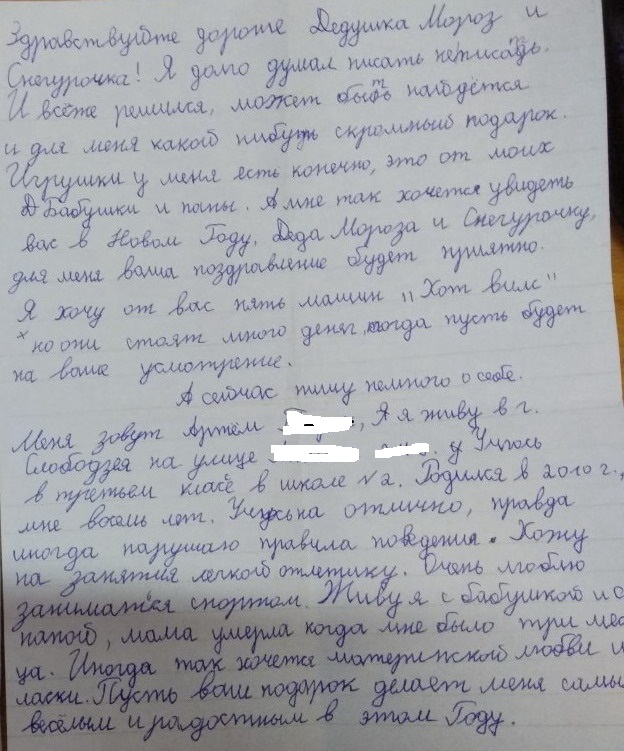 Здравствуйте дорогие Дедушка Мороз и
Снегурочка! Я долго думал писать не писать.
И всёже решился, может быть найдётся
и для меня какой нибудь скромный подарок.
Игрушки у меня есть конечно, это от моих
Бабушки и папы. А мне так хочется увидеть
вас в Новом Году, Деда Мороза и Снегурочку,
для меня ваша поздравление будет приятно.
Я хочу от вас пять машин "Хот вилс"
но они стоят много денег, тогда пусть будет
на ваше усмотрение.
А сейчас пишу немного о себе.
Меня зовут Артём , Я я живу в г.
Слободзея на улице у Учюсь
в третьем класе в школе №2. Родился в 2010 г.,
мне восемь лет. Учюсь на отлично, правда
иногда нарушаю правила поведения. Хожу
на занятия легкой отлетику. Очень люблю
заниматся спортом. Живу я с бабушкой и с
папой, мама умерла когда мне было три меся
ца. Иногда так хочется материнской любви и
ласки. Пусть ваш подарок делает меня самым
весёлым и радостным в этом Году.